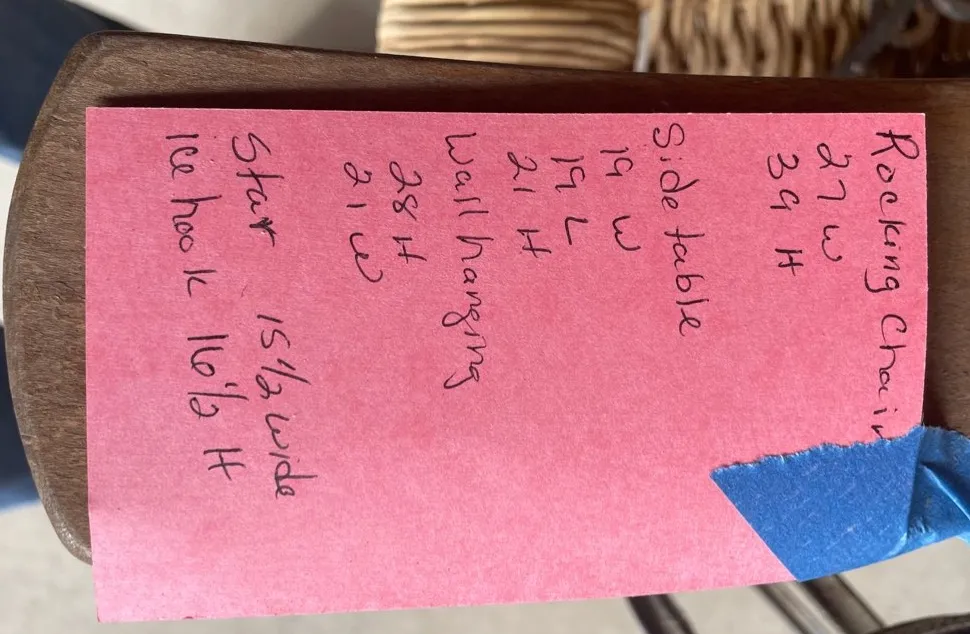 Rocking Chair
27 W
39 H
Side table
19 W
19 L
21 H
Wall hanging
28 H
21 W
Star 15 1/2 wide
Ice hook 16 1/2 H